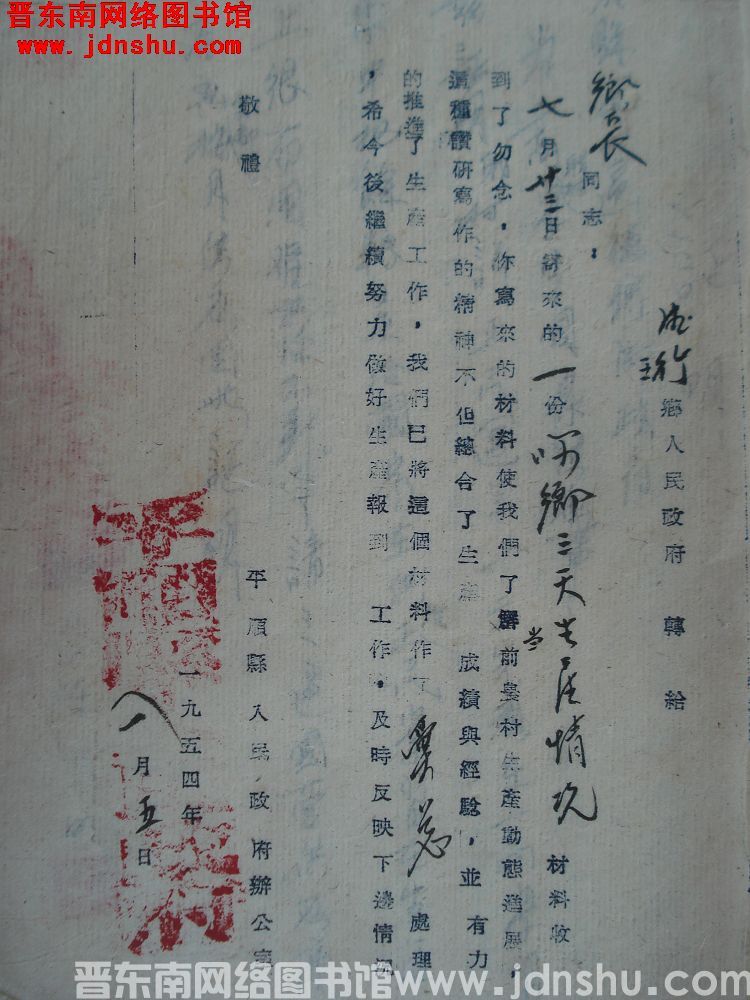 晋东南网络图书馆
www.jdnshu.com
鄉人民政府 轉給
鄉長 同志：
七月廿三日寄來的一份 鄉三天生產情况 材料收
到了勿念，你寫來的材料使我們了解當前農村生產動態進展，
這種鑽研寫作的精神不但總合了生產 成績與經驗，並 有力
的推進了生產工作，我們已將這個材料作了 處理
，希今後繼續努力做好生產報到 工作，及時反映下邊情況
敬禮
平順縣人民政府辦公室
一九五四年
八月五日
晋东南网络图书馆 www.jdnshu.com